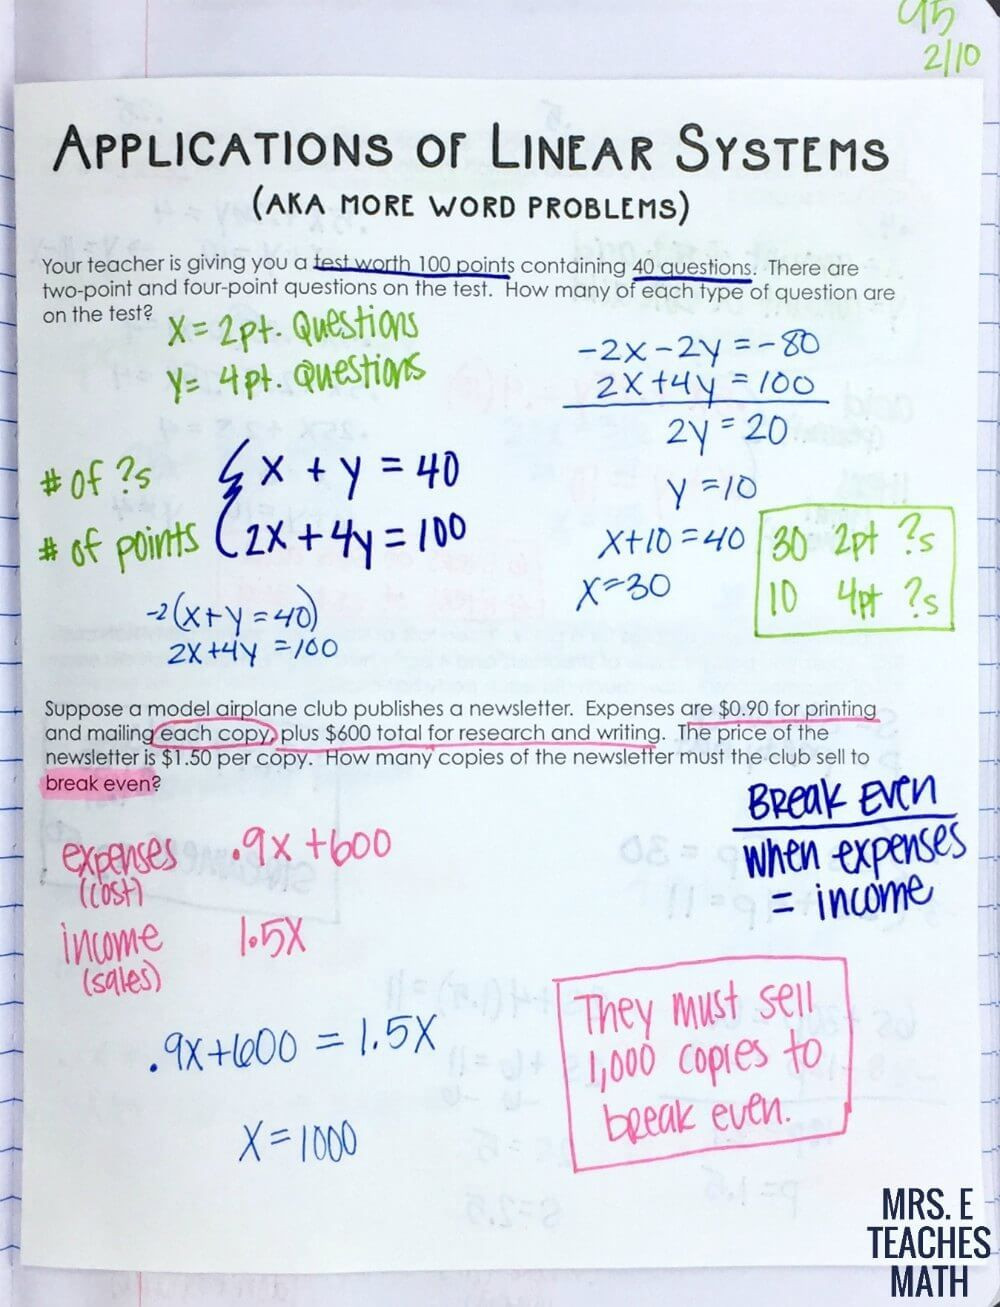 95
2/10
APPLICATIONS OF LINEAR SYSTEMS
(AKA MORE WORD PROBLEMS)
Your teacher is giving you a test worth 100 points containing 40 questions. There are
two-point and four-point questions on the test. How many of each type of question are
on the test?
X = 2pt. Questions
Y= 4pt. Questions
# of ?s
x + y = 40
# of points
2x + 4y = 100
-2(x+y=40)
2x+4y =100
-2x-2y=-80
2x+4y=100
2y=20
y=10
x+10=40
x=30
30 2pt ?s
10 4pt ?s
Suppose a model airplane club publishes a newsletter. Expenses are $0.90 for printing
and mailing each copy, plus $600 total for research and writing. The price of the
newsletter is $1.50 per copy. How many copies of the newsletter must the club sell to
break even?
Break Even
when expenses
= income
expenses .9x+600
(cost)
income 1.5x
(sales)
.9x+600 = 1.5x
x=1000
They must sell
1,000 copies to
break even.
MRS. E
TEACHES
MATH